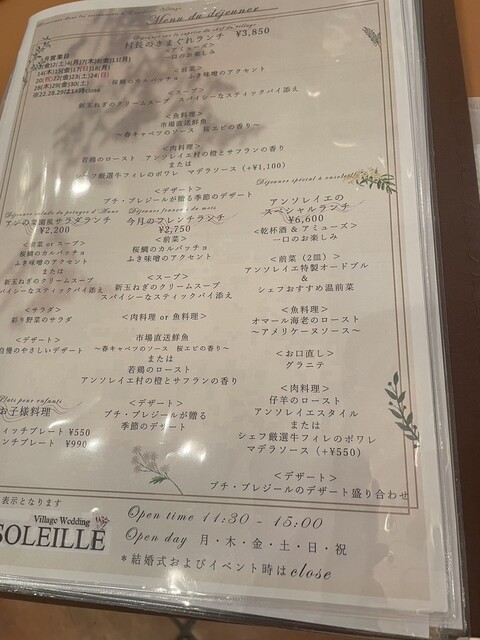 Menu du déjeuner
村長のきまぐれランチ ¥3,850
＜アミューズ＞
一口のお楽しみ
＜前菜＞
桜鯛のカルパッチョ ふき味噌のアクセント
＜スープ＞
新玉ねぎのクリームスープ スパイシーなスティックパイ添え
＜魚料理＞
市場直送鮮魚
～春キャベツのソース 桜エビの香り～
＜肉料理＞
若鶏のロースト アンソレイエ村の橙とサフランの香り
または
シェフ厳選牛フィレのポワレ マデラソース（+¥1,100）
＜デザート＞
プチ・プレジールが贈る季節のデザート
アンの菜園風サラダランチ
¥2,200
＜前菜 or スープ＞
桜鯛のカルパッチョ
ふき味噌のアクセント
または
新玉ねぎのクリームスープ
スパイシーなスティックパイ添え
＜サラダ＞
彩り野菜のサラダ
＜デザート＞
自慢のやさしいデザート
Plats pour enfants
お子様料理
¥550
ンチプレート ¥990
Déjeuner français du mois
今月のフレンチランチ
¥2,750
＜前菜＞
桜鯛のカルパッチョ
ふき味噌のアクセント
＜スープ＞
新玉ねぎのクリームスープ
スパイシーなスティックパイ添え
＜肉料理 or 魚料理＞
市場直送鮮魚
～春キャベツのソース 桜エビの香り～
または
若鶏のロースト
アンソレイエ村の橙とサフランの香り
＜デザート＞
プチ・プレジールが贈る
季節のデザート
Déjeuner spécial à ensoleillé
アンソレイエの
スペシャルランチ
¥6,600
＜乾杯酒 & アミューズ＞
一口のお楽しみ
＜前菜（2皿）＞
アンソレイエ特製オードブル
&
シェフおすすめ温前菜
＜魚料理＞
オマール海老のロースト
～アメリケーヌソース～
＜お口直し＞
グラニテ
＜肉料理＞
仔羊のロースト
アンソレイエスタイル
または
シェフ厳選牛フィレのポワレ
マデラソース（+¥550）
＜デザート＞
プチ・プレジールのデザート盛り合わせ
表示となります
Village Wedding
SOLEILLE
Open time 11:30 - 15:00
Open day 月・木・金・土・日・祝
*結婚式およびイベント時はclose